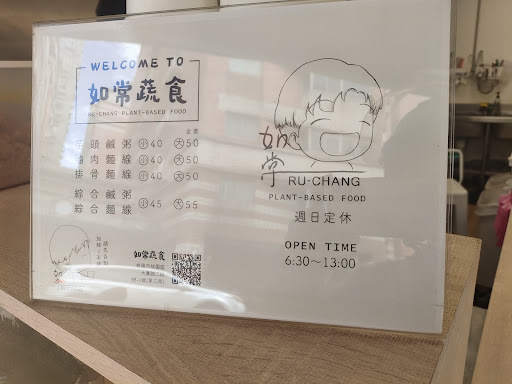 WELCOME TO
如常蔬食
RU-CHANG PLANT-BASED FOOD
全素
芋頭鹹粥 小40 大50
滷肉麵線 小40 大50
排骨麵線 小40 大50
綜合鹹粥
綜合麵線 小45 大55
如常蔬食
如常
RU-CHANG
PLANT-BASED FOOD
週日定休
OPEN TIME
6:30~13:00